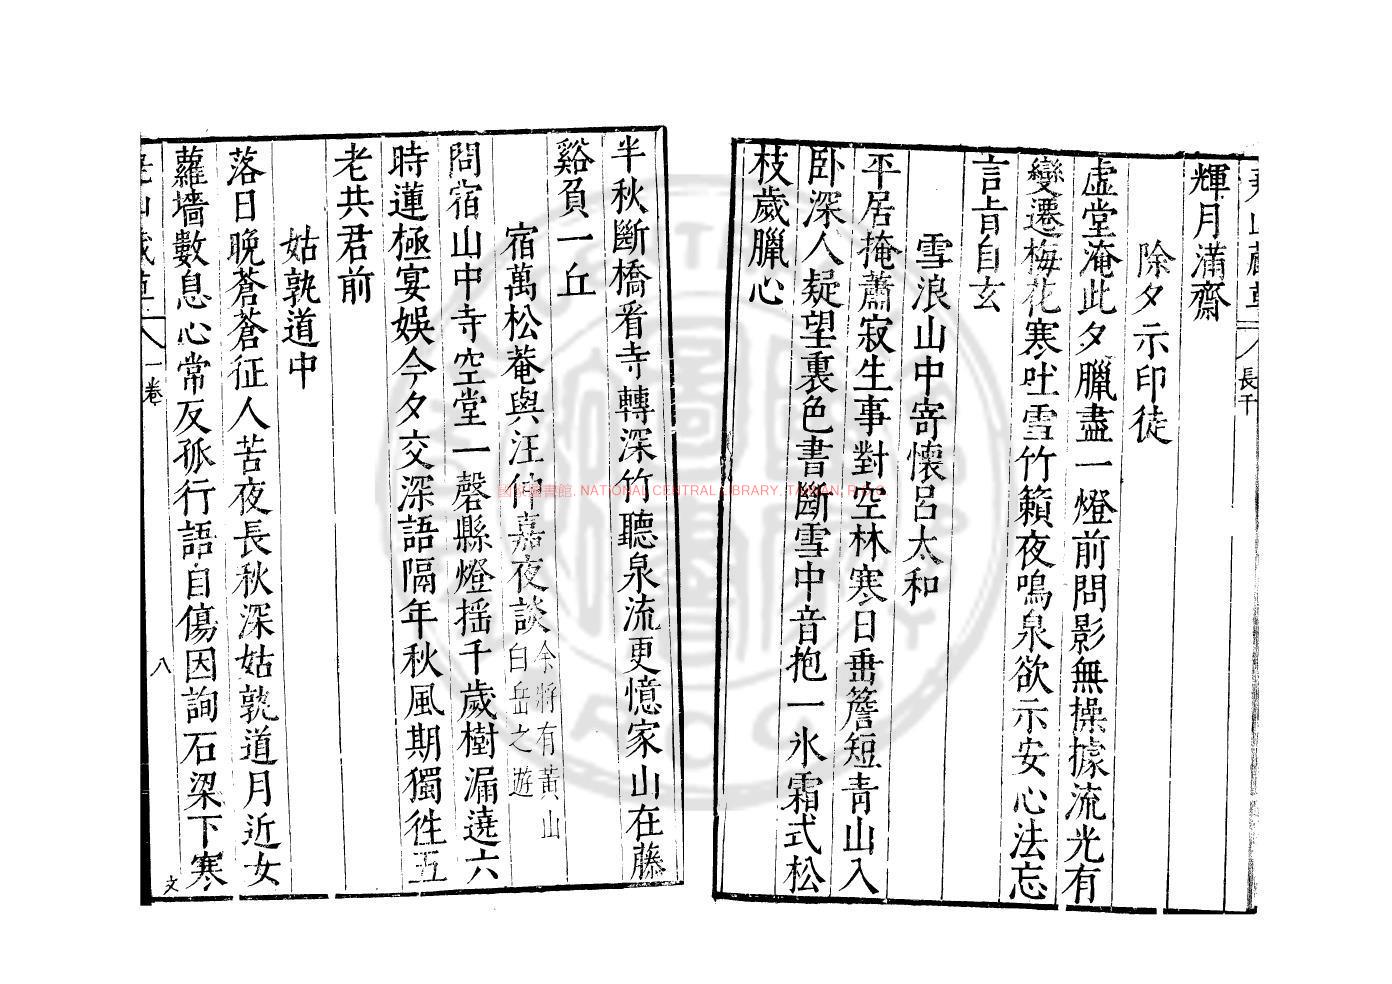 輝月滿齋
除夕示印徒
虛堂淹此夕臘盡一燈前問影無操據流光有
變遷梅花寒吐雪竹籟夜鳴泉欲示安心法忘
言旨自玄
雪浪山中寄懷呂太和
平居掩蕭寂生事對空林寒日垂簷短青山入
卧深人疑望裏色書斷雪中音抱一氷霜式松
枝歲臘心
半秋斷橋看寺轉深竹聽泉流更憶家山在藤
谿負一丘
宿萬松菴與汪仲嘉夜談余將有黃山白岳之遊
問宿山中寺空堂一磬縣燈揺千歲樹漏遶六
時蓮極宴娛今夕交深語隔年秋風期獨徃五
老共君前
姑孰道中
落日晚蒼蒼征人苦夜長秋深姑孰道月近女
蘿墻數息心常反孤行語自傷因詢石梁下寒
一卷
八
文
長干
國家圖書館, NATIONAL CENTRAL LIBRARY, TAIWAN, R.O.C